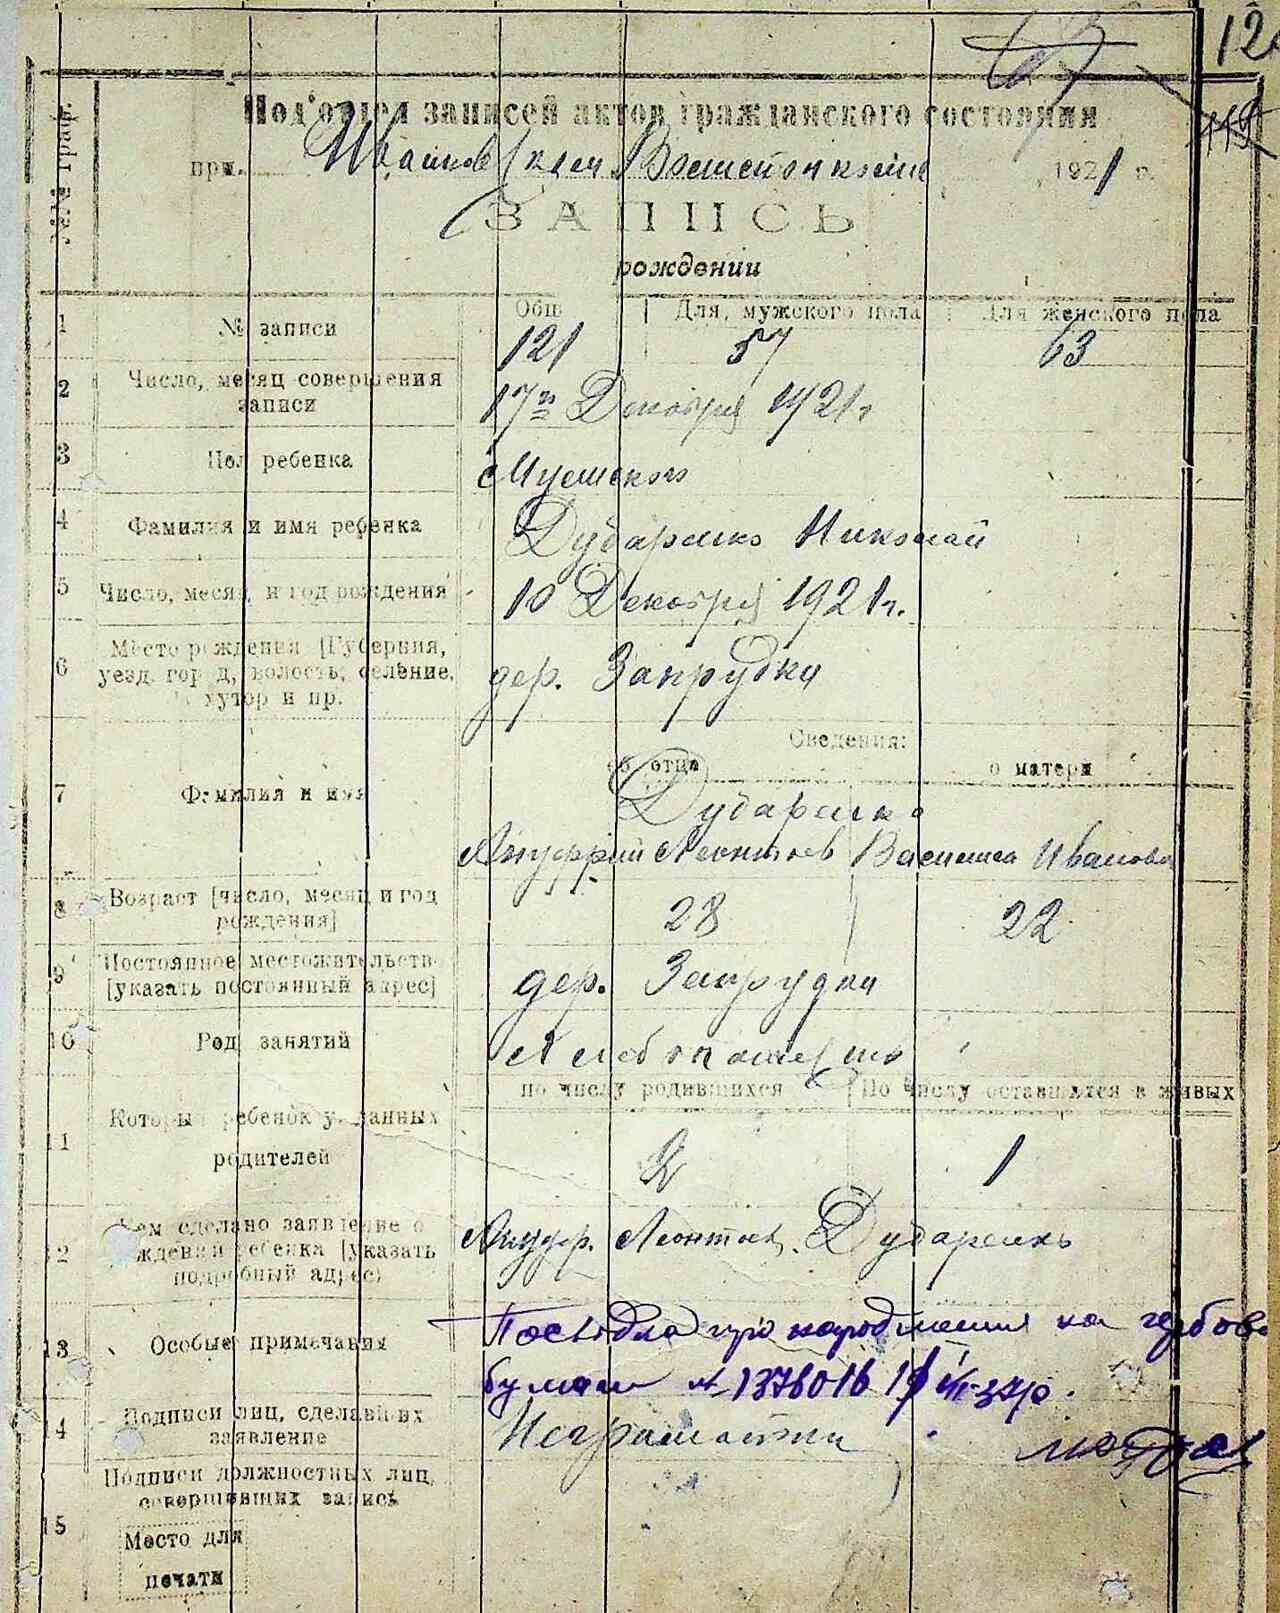 12
Под'отдел записей актов гражданского состояния
при 1921 г.
ЗАПИСЬ
рождении
№№ граф.
Общ Для мужского пола Для женского пола
1 № записи 121 57 63
2 Число, месяц совершения
записи 17го Декабря 1921 г
3 Пол ребенка Мужского
4 Фамилия и имя ребенка Дударенко Николай
5 Число, месяц и год рождения 10 Декабря 1921 г.
6 Место рождения [Губерния,
уезд, город, волость, селение,
хутор и пр. дер. Запрудка
Сведения:
об отце о матери
7 Фамилия и имя Дударенко
Ануфрий Леонтьев Василиса Иванова
8 Возраст [число, месяц и год
рождения] 28 22
9 Постоянное местожительств
[указать постоянный адрес] дер. Запрудка
10 Род занятий Хлебопашество
по числу родившихся По числу оставшихся в живых
11 Которы ребенок у данных
родителей 2 1
12 Кем сделано заявление о
рождении ребенка [указать
подробный адрес) Ануфр. Леонтьев Дударенко
13 Особые примечания на гербов
№ 1376016
14 Подписи лиц, сделавших
заявление Неграмотны
15 Подписи должностных лиц,
совершивших запись
Место для
печати